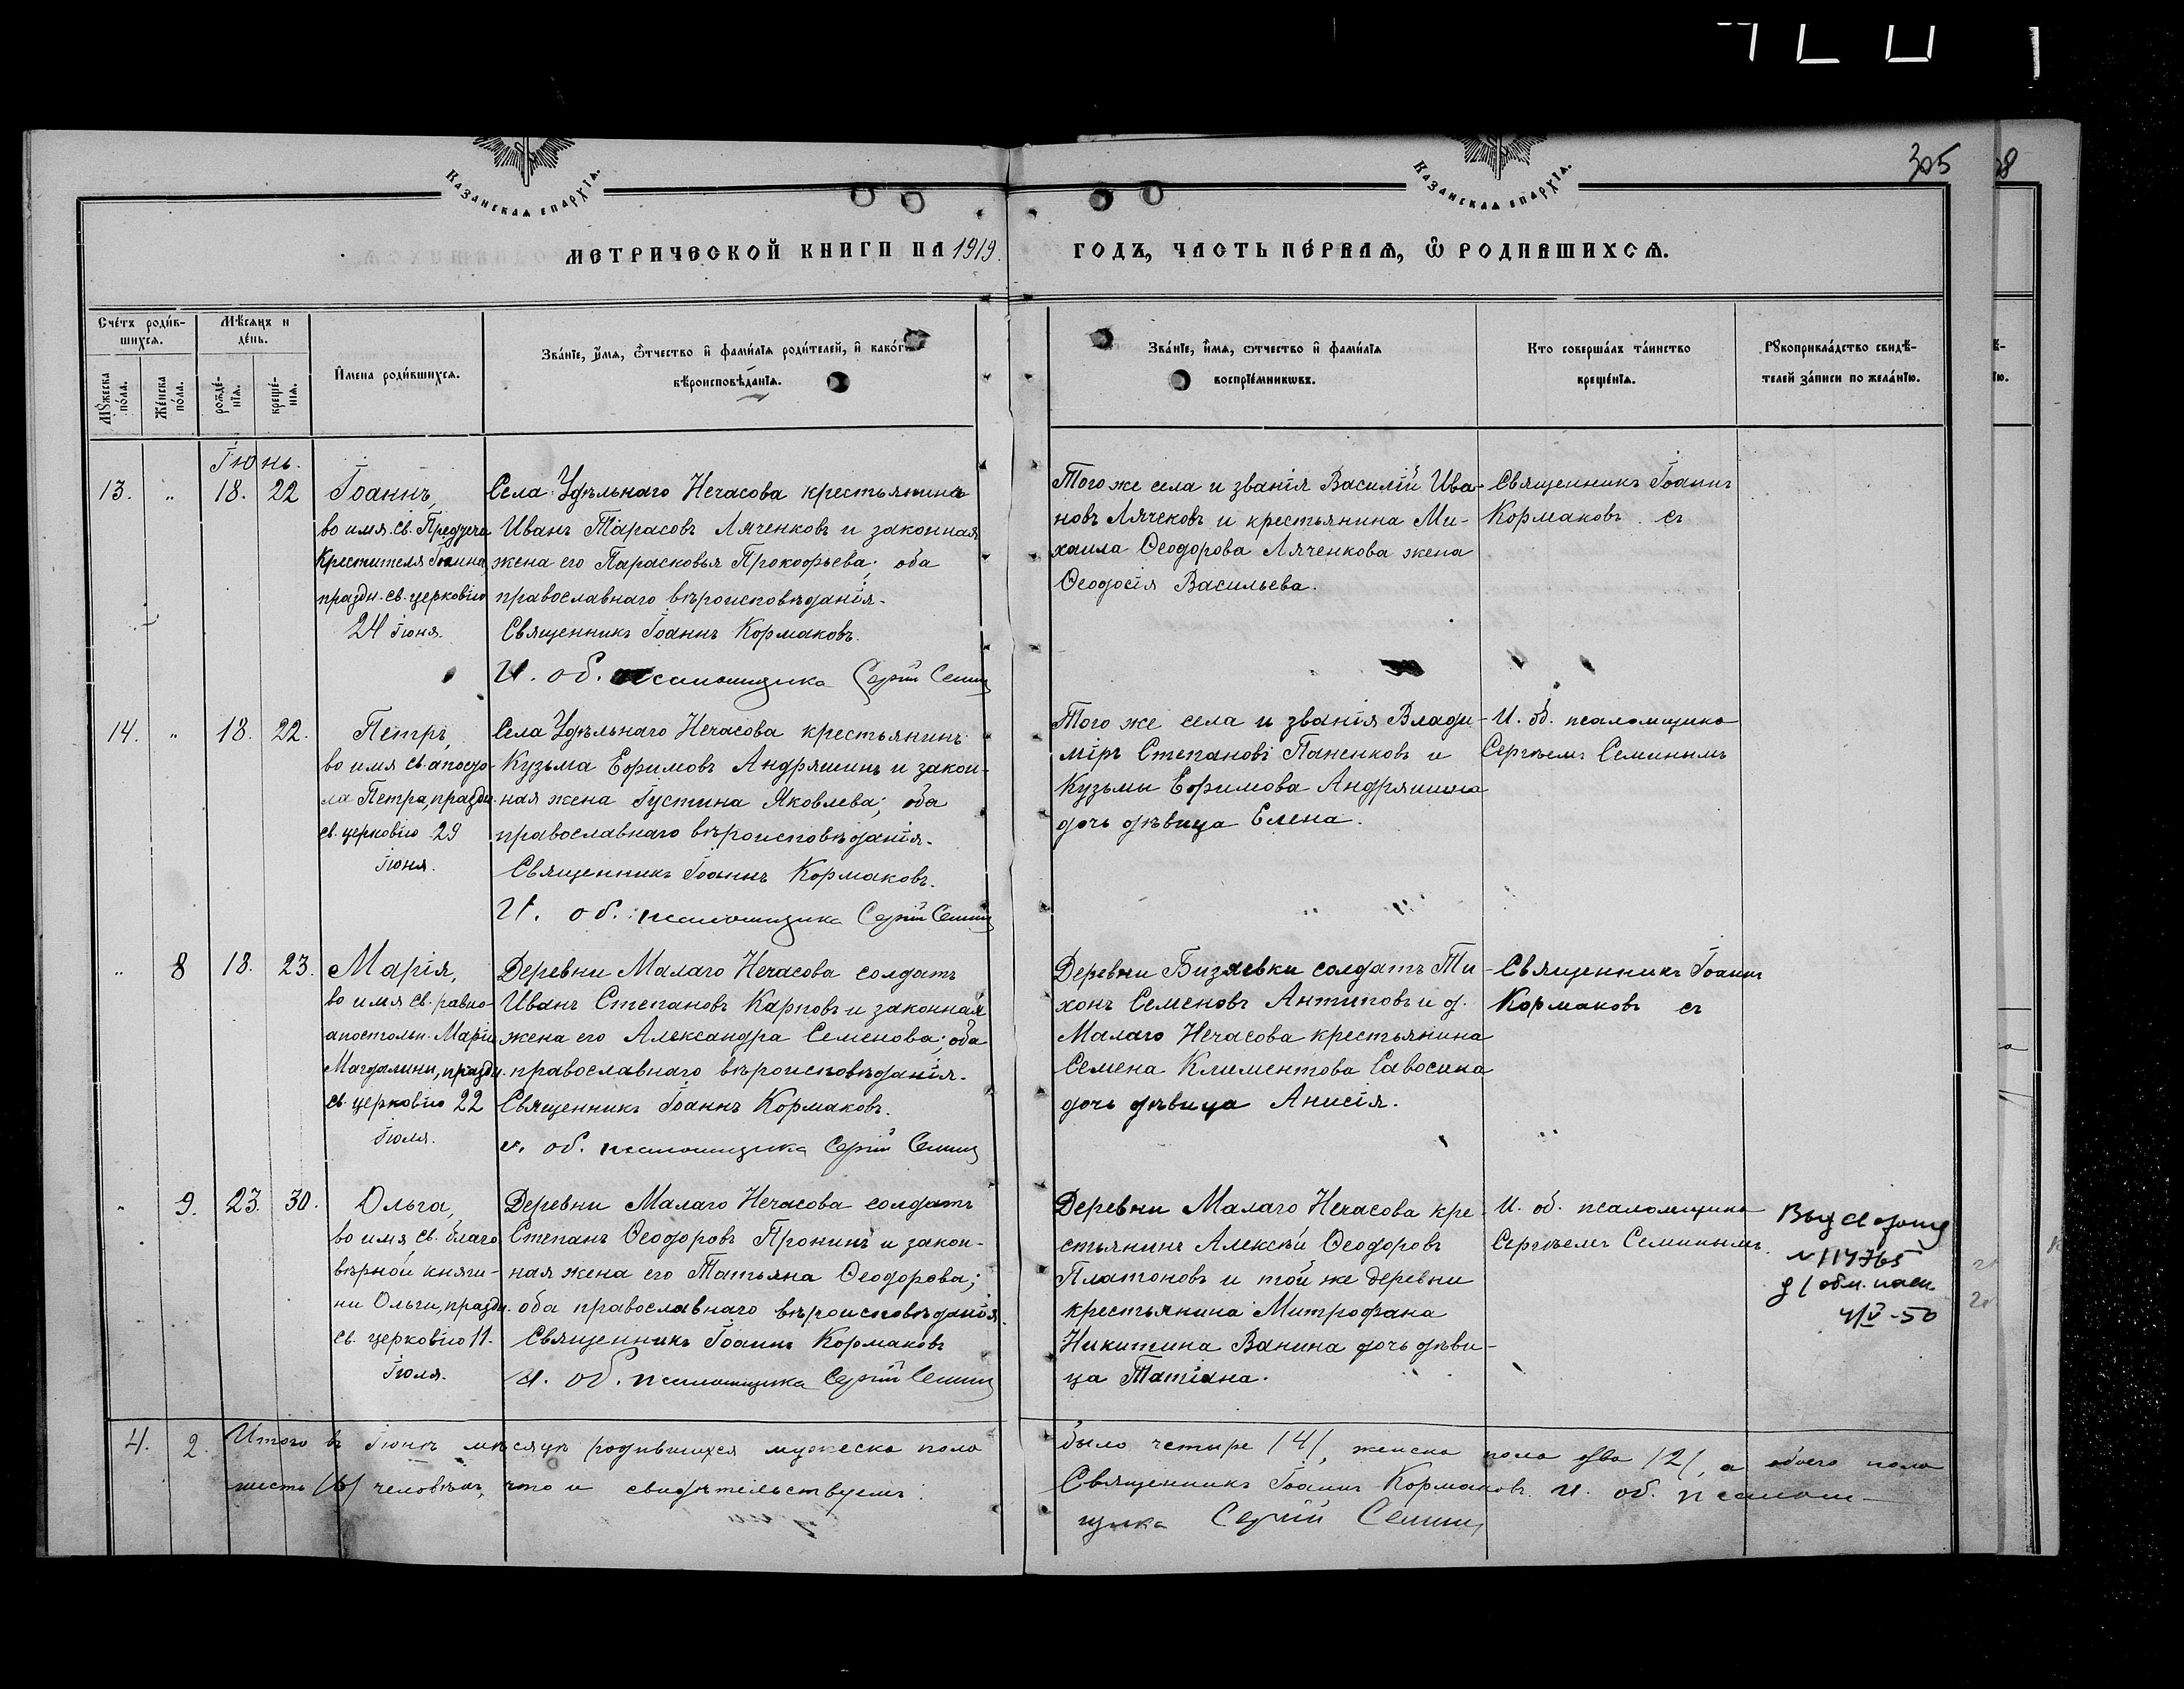 305
КАЗАНСКАЯ ЕПАРХІЯ.
КАЗАНСКАЯ ЕПАРХІЯ.
МЕТРИЧЕСКОЙ КНИГИ НА 1919. ГОДЪ, ЧАСТЬ ПЕ́РВАЯ, Ѽ РОДИВШИХСЯ.
Сче́тъ роди́в-
шихсѧ.
Мѣ́сѧцъ и
де́нь.
Мꙋжеска
по́ла.
Же́нска
по́ла.
рожде́-
нїѧ.
креще́-
нїѧ.
И҆мена роди́вшихсѧ.
Зва́нїе, и҆́мѧ, ѻ҆́тчество и҆ фами́лїѧ роди́телей, и҆ како́гѡ
вѣроисповѣ́данїѧ.
Зва́нїе, и҆́мѧ, ѻтчество и҆ фами́лїѧ
воспрїе́мникѡвъ.
Кто соверша́лъ та́инство
креще́нїѧ.
Рꙋкоприкла́дство свидѣ́-
телей за́писи по жела́нїю.
Іюнь.
13.
"
18.
22
Іоаннъ,
во имя св. Предтечи
Крестителя Іоанна,
праздн. св. церковію
24 іюня.
Села Удѣльнаго Нечасова крестьянинъ
Иванъ Тарасовъ Ляченковъ и законная
жена его Парасковья Прокофьева; оба
православнаго вѣроисповѣданія.
Священникъ Іоаннъ Кормаковъ.
И. об. псаломщика Сергій Семинъ
Того же села и званія Василій Ива-
новъ Лячековъ и крестьянина Ми-
хаила Ѳеодорова Ляченкова жена
Ѳеодосія Васильева.
Священникъ Іоаннъ
Кормаковъ съ
14.
"
18.
22.
Петръ,
во имя св. апосто-
ла Петра, праздн.
св. церковію 29
іюня.
Села Удѣльнаго Нечасова крестьянинъ
Кузьма Ефимовъ Андряшинъ и закон-
ная жена Іустина Яковлева; оба
православнаго вѣроисповѣданія.
Священникъ Іоаннъ Кормаковъ.
И. об. псаломщика Сергій Семинъ
Того же села и званія Влади-
міръ Степановъ Паненковъ и
Кузьмы Ефимова Андряшина
дочь дѣвица Елена.
И. об. псаломщика
Сергѣемъ Семинымъ
"
8
18.
23.
Марія,
во имя св. равно-
апостольн. Маріи
Магдалины, праздн.
св. церковію 22
іюля.
Деревни Малаго Нечасова солдатъ
Иванъ Степановъ Карповъ и законная
жена его Александра Семенова; оба
православнаго вѣроисповѣданія.
Священникъ Іоаннъ Кормаковъ.
и. об. псаломщика Сергій Семинъ
Деревни Бизяевки солдатъ Ти-
хонъ Семеновъ Антиповъ и д.
Малаго Нечасова крестьянина
Семена Климентова Савосина
дочь дѣвица Анисія.
Священникъ Іоаннъ
Кормаковъ съ
"
9.
23.
30.
Ольга,
во имя св. благо
вѣрной княги-
ни Ольги, праздн.
св. церковію 11.
іюля.
Деревни Малаго Нечасова солдатъ
Степанъ Ѳеодоровъ Пронинъ и закон-
ная жена его Татьяна Ѳеодорова;
оба православнаго вѣроисповѣданія.
Священникъ Іоаннъ Кормаковъ
И. об. псаломщика Сергій Семинъ
Деревни Малаго Нечасова кре-
стьянинъ Алексѣй Ѳеодоровъ
Платоновъ и той же деревни
крестьянина Митрофана
Никитина Ванина дочь дѣви-
ца Татіана.
И. об. псаломщика
Сергѣемъ Семинымъ.
№ 117765
4/V-50
4.
2.
Итого въ Іюнѣ мѣсяцѣ родившихся мужеска пола было четыре /4/, женска пола два /2/, а обоего пола
шесть /6/ человѣкъ, что и свидѣтельствуемъ. Священникъ Іоаннъ Кормаковъ. И. об. псалом-
щика Сергій Семинъ